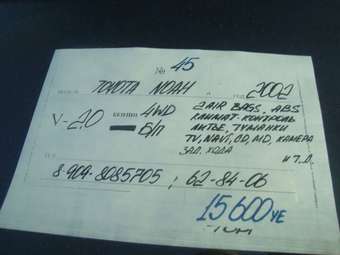 № 45
TOYOTA NOAH 2002
V-2,0 БЕНЗИН 4WD Б/П
2 AIR BAGS, ABS
КЛИМАТ-КОНТРОЛЬ
ЛИТЬЕ, ТУМАНКИ
TV, NAVI, CD, MD, КАМЕРА
ЗАД. ХОДА
И Т.Д.
8-904-8085705; 62-84-06
15600 УЕ